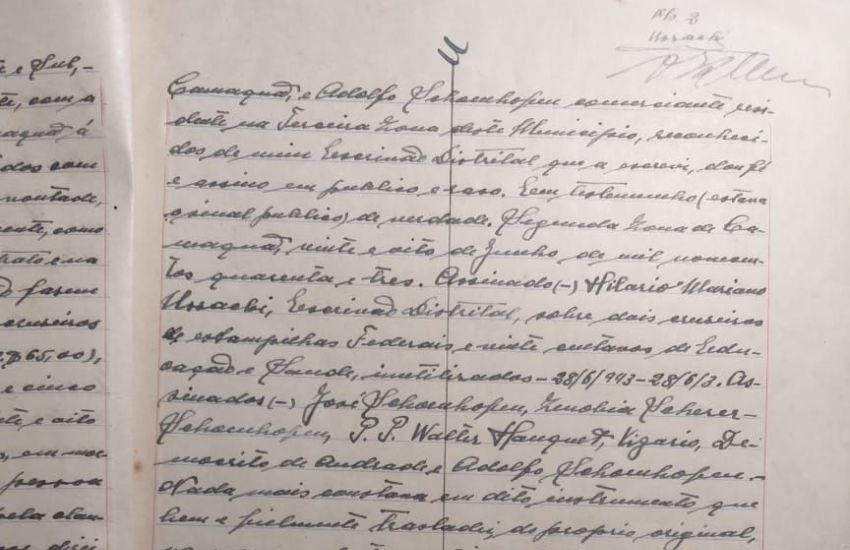 e Sub,-
te, com a
maquã á
dos com
vontade,
ente, como
trato e na
fazem
cruzeiros
$65,00),
e cinco
te e oito
, em moe
pessoa
pela clau-
Fls. 2
Ussacki
Camaquã, e Adolfo Schoenhofen comerciante resi-
dente na Terceira Zona deste Municipio, reconheci-
dos de mim Escrivão Distrital que a escrevi, dou fé
e assino em publico e raso. Eem testemunho (estava
o sinal publico) de verdade. Segunda Zona de Ca-
maquã, vinte e oito de Junho de mil novecen-
tos quarenta e tres. Assinado (-) Hilario Mariano
Ussacki, Escrivão Distrital, sobre dois cruzeiros
de estampilhas Federais e vinte centavos de Edu-
cação e Saude, inutilizados - 28/6/943 - 28/6/3. As-
sinados (-) José Schoenhofen, Zenobia Scherer-
Schoenhofen, P. P. Walter Hanquet, Vigario, De-
mocrito de Andrade e Adolfo Schoenhofen.-
Nada mais constava em dito instrumento que
bem e fielmente trasladei, do proprio original,